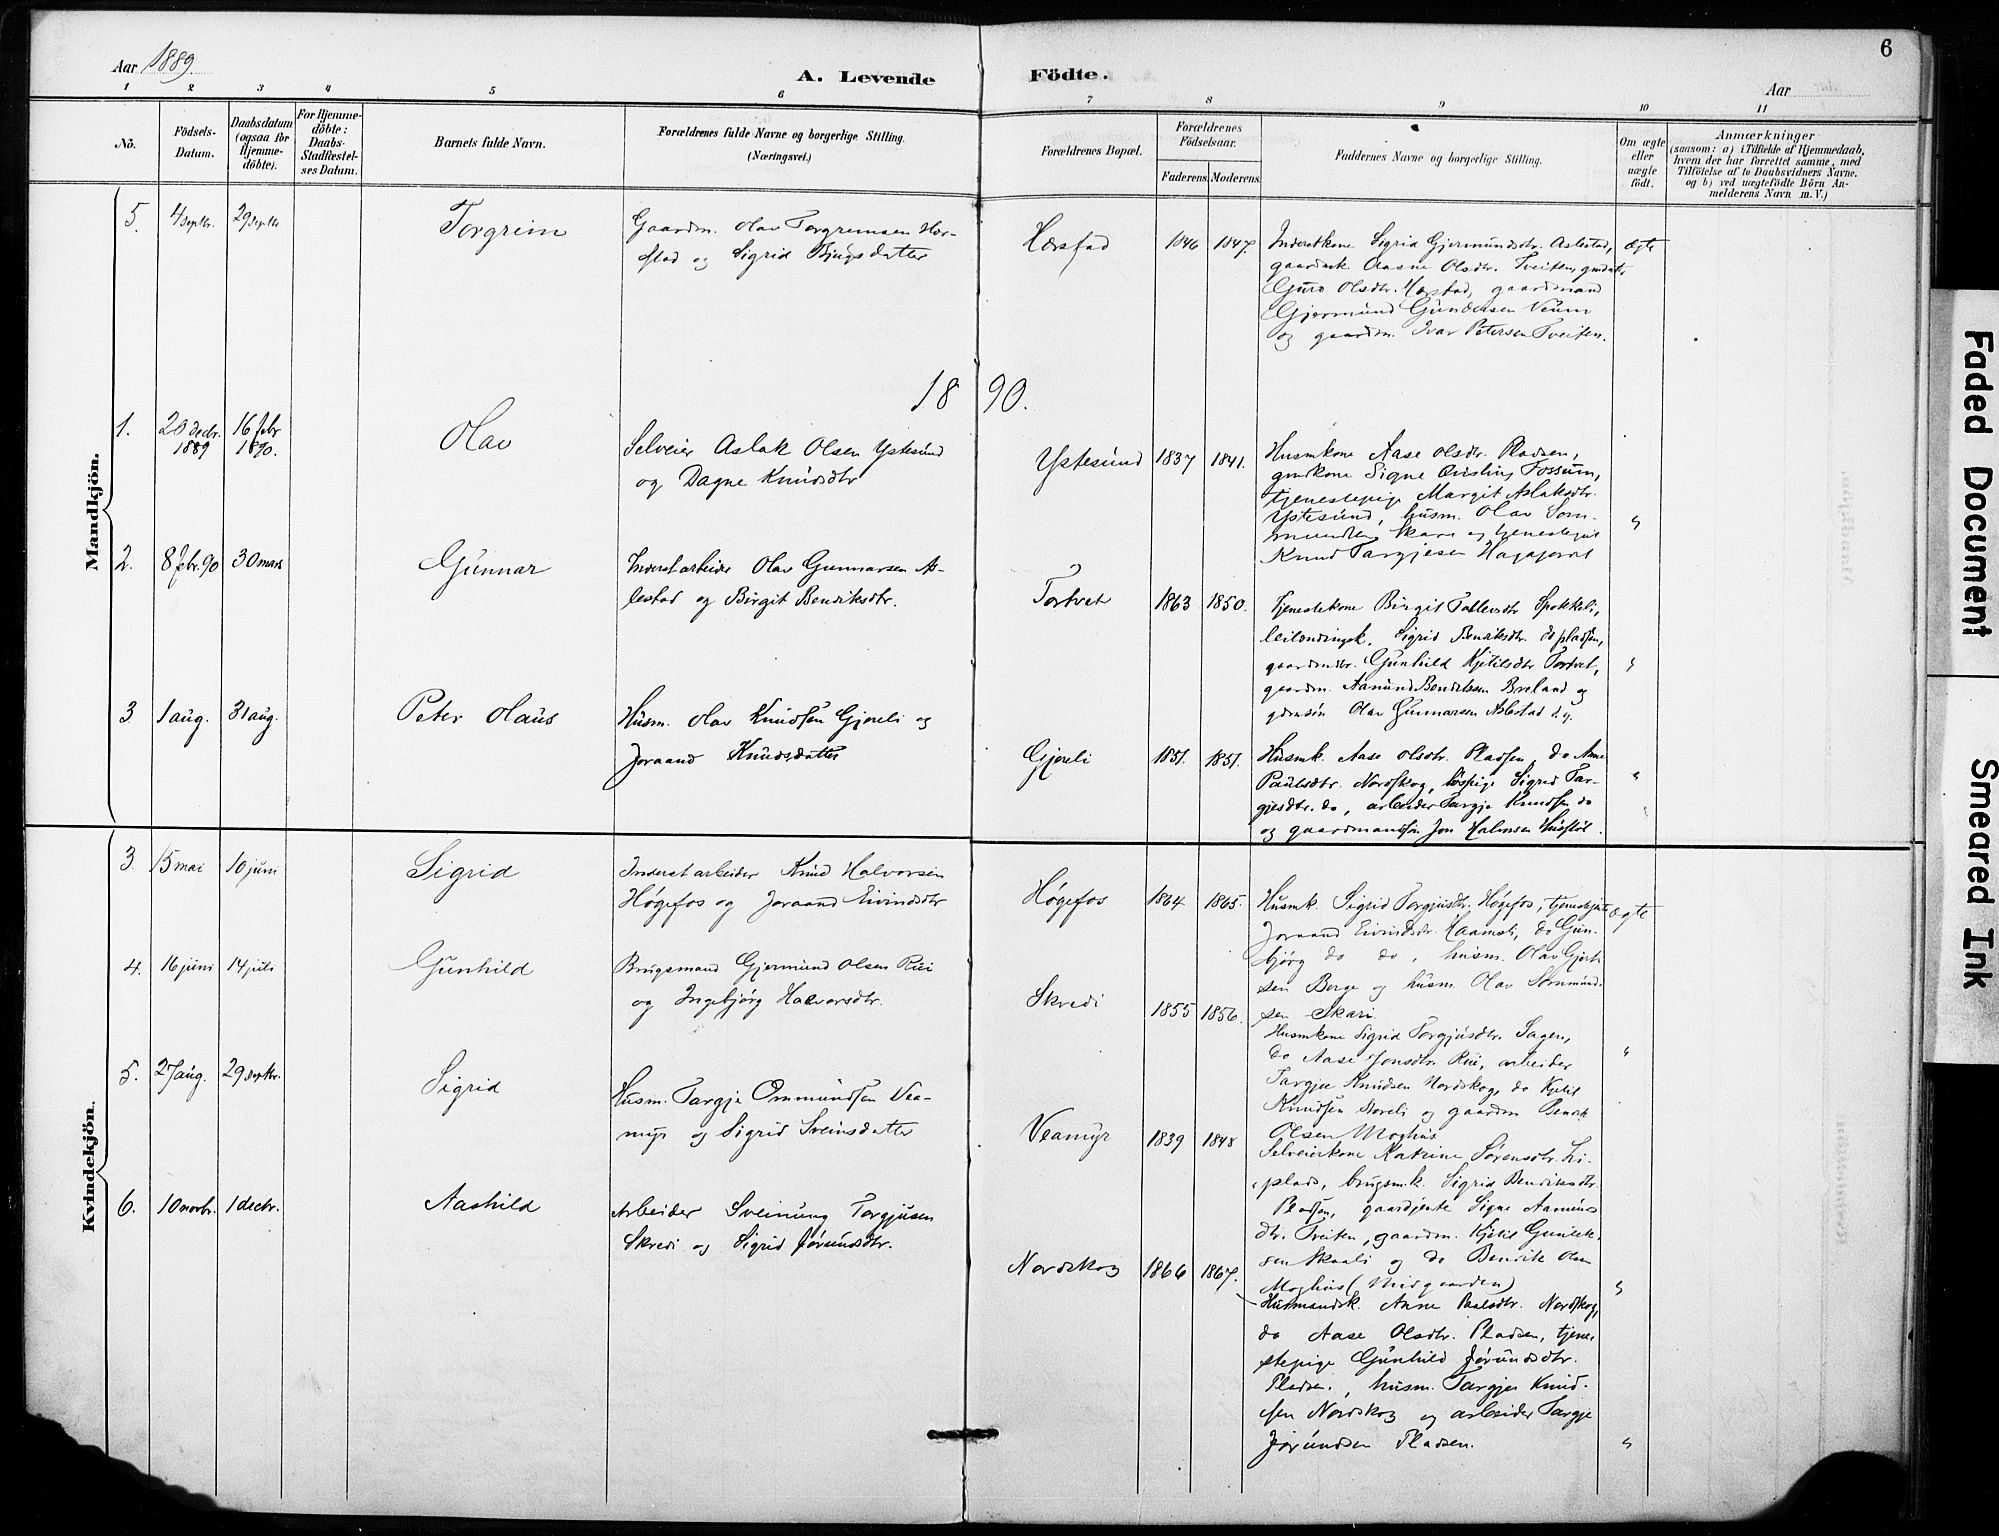 6
Aar 1889.
A. Levende Födte.
Aar
1 2 3 4 5 6 7 8 9 10 11
No.
Födsels-
Datum.
Daabsdatum
(ogsaa for
Hjemme-
döbte).
For Hjemme-
döbte:
Daabs-
Stadfæstel-
ses Datum.
Barnets fulde Navn.
Forældrenes fulde Navne og borgerlige Stilling.
(Næringsvei.)
Forældrenes Bopæl.
Forældrenes
Födselsaar.
Faderens. Moderens.
Faddernes Navne og borgerlige Stilling.
Om ægte
eller
uægte
födt.
Anmærkninger
(saasom: a) i Tilfælde af Hjemmedaab,
hvem der har forrettet samme, med
Tilföielse af to Daabsvidners Navne.
og b) ved uægtefödte Börn An-
melderens Navn m. V.)
Mandkjön.
5. 4 septbr. 29 septbr Torgrim
Gaardm. Olav Torgrimsen Hær-
stad og Sigrid Bjugsdatter
Hærstad 1846 1847.
Inderstkone Sigrid Gjermundsdtr. Aslestad, ægte
gaardmk. Aasne Olsdtr. Tveiten, gmdatr
Guro Olsdtr. Hærstad, gaardmand
Gjermund Gundersen Veum
og gaardm. Ivar Petersen Tveiten.
1890.
1. 20 decbr. 1889 16 febr 1890. Olav
Selveier Aslak Olsen Ystesund
og Dagne Knudsdtr
Ystesund 1837 1841.
Husmkone Aase Olsdtr. Pladsen,
gmkone Signe Tossum,
tjenestepige Margit Aslaksdtr.
Ystesund, husm. Olav Sørn-
mundsen Skare og tjenestegut
Knud Targjesen "
2. 8 febr. 90 30 mars Gunnar
Inderst arbeider Olav Gunnarsen As-
lestad og Birgit Bendiksdtr.
Tortvet 1863 1850.
Tjenestekone Birgit Tallevsdtr
leilændingsk. Sigrid Bendiksdtr. do pladsen,
gaardmdtr. Gunhild Kjetilsdtr Tortvet, "
gaardm. Aamund Bendiksen Breland og
gdmsøn Olav Gunnarsen Aslestad d.y.
3. 1 aug. 31 aug. Peter Olaus
Husm. Olav Knudsen Gjoreli og
Joraand Knudsdatter
Gjoreli 1851. 1851.
Husmk. Aase Olsdtr. Pladsen, do Anne
Paulsdtr. Nordskog, Sigrid Tar- "
gjesdtr. do, arbeider Targje Knudsen do "
og gaardmandssøn Jon
Kvindekjön.
3. 15 mai 10 juni Sigrid
Inderst arbeider Knud Halvorsen
Høgefos og Joraand Eivindsdtr
Høgefos 1864 1865.
Husmk. Sigrid Torgjusdtr. Høgefos, tjenestejente ægte
Joraand Eivindsdtr. Haamoli, do Gun-
bjørg do do, husm. Olav
sen Berge og husm. Olav Sørnmund-
sen Skari.
4. 16 juni 14 juli Gunhild
Brugsmand Gjermund Olsen Rui
og Ingebjørg Halvorsdtr.
Skredi 1855 1856.
Husmkone Sigrid Torgjusdtr. Sagen,
do Aase Jonsdtr. Rui, arbeider "
Targje Knudsen Nordskog, do Kjetil
Knudsen Storeli og gaardm Bendik
Olsen Moghus
5. 27 aug. 29 septbr. Sigrid
Husm. Targje Ommundsen Vea-
myr og Sigrid Sveinsdatter
Veamyr 1839 1848
Selveierkone Katrine Sørensdtr. Li-
plads, brugsmk. Sigrid Bendiksdtr.
Pladsen, gaardjente Signe Aamunds
dtr. Tveiten, gaardm. Kjetil Gunleik-
sen Skaali og do Bendik Olsen
Moghus (Midgaarden) "
6. 10 novbr. 1 decbr. Aashild
Arbeider Sveinung Torgjusen
Skredi og Sigrid Jørundsdtr.
Nordskog 1866 1867.
Husmandsk. Anne Paalsdtr. Nordskog,
do Aase Olsdtr. Pladsen, tjene-
stepige Gunhild Jørundsdtr.
Pladsen, husm. Targje Knud-
sen Nordskog og arbeider Targje
Jørundsen Pladsen. "
Faded Document
Smeared Ink